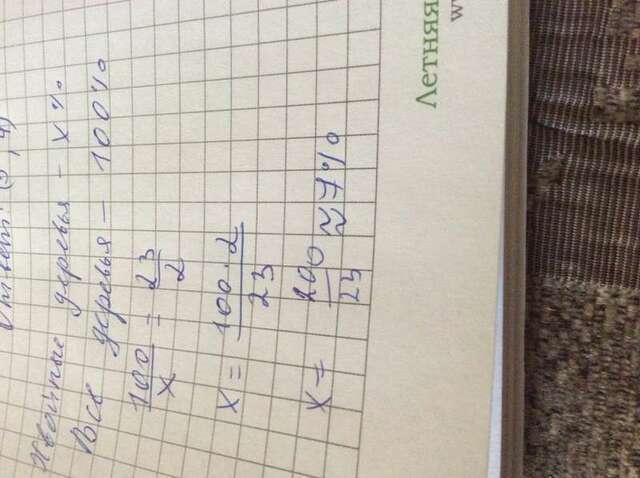 Ответ: (3; 4)
Хвойные деревья - x%
Все деревья - 100%
100/x = 23/2
x = 100·2/23
x = 200/23 ≈ 7%
Летняя
w